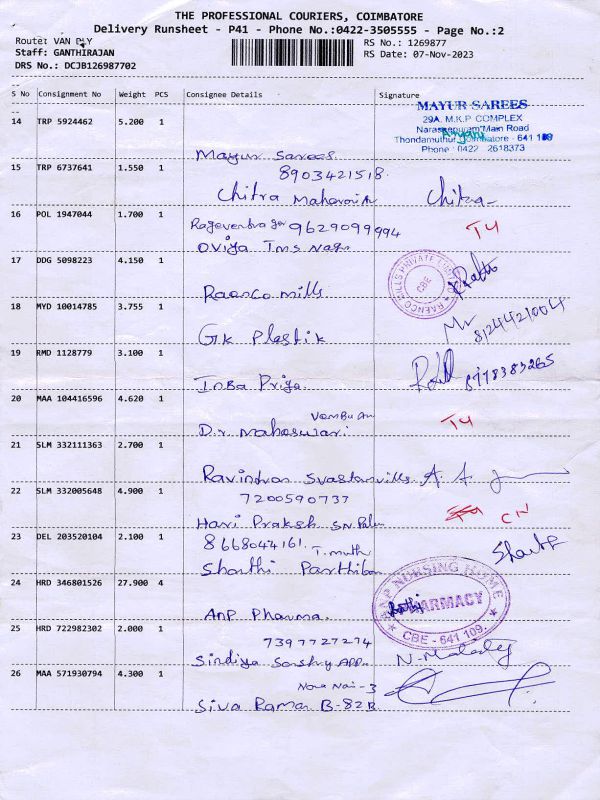 THE PROFESSIONAL COURIERS, COIMBATORE
Delivery Runsheet - P41 - Phone No.:0422-3505555 - Page No.:2
Route: VAN PLY
RS No.: 1269877
Staff: GANTHIRAJAN
RS Date: 07-Nov-2023
DRS No.: DCJB126987702
S No Consignment No Weight PCS Consignee Details Signature
MAYUR SAREES
29A, M.K.P COMPLEX
Naraseepuram Main Road
Thondamuthur, Coimbatore - 641 109
Phone : 0422 2618373
14 TRP 5924462 5.200 1
Mayur Sarees
8903421518
15 TRP 6737641 1.550 1
Chitra Chitra
16 POL 1947044 1.700 1
9629099994 T4
Oviya Tms Nagar
17 DDG 5098223 4.150 1
RAENCO MILLS PRIVATE LIMITED
CBE
Raenco mills
18 MYD 10014785 3.755 1
8124421004
GK Plastik
19 RMD 1128779 3.100 1
8778383265
Inba Priya
20 MAA 104416596 4.620 1
T4
D.r. Maheswari
21 SLM 332111363 2.700 1
Ravindran
7200590737
22 SLM 332005648 4.900 1
CN
Hari Praksh S.N. Palm
8668044161
23 DEL 203520104 2.100 1
T. muth
Shanthi Parthiban
24 HRD 346801526 27.900 4
ANP NURSING HOME
PHARMACY
CBE - 641 109.
ANP Pharma
7397727274
25 HRD 722982302 2.000 1
Sindiya
26 MAA 571930794 4.300 1
Siva Raman B-82B